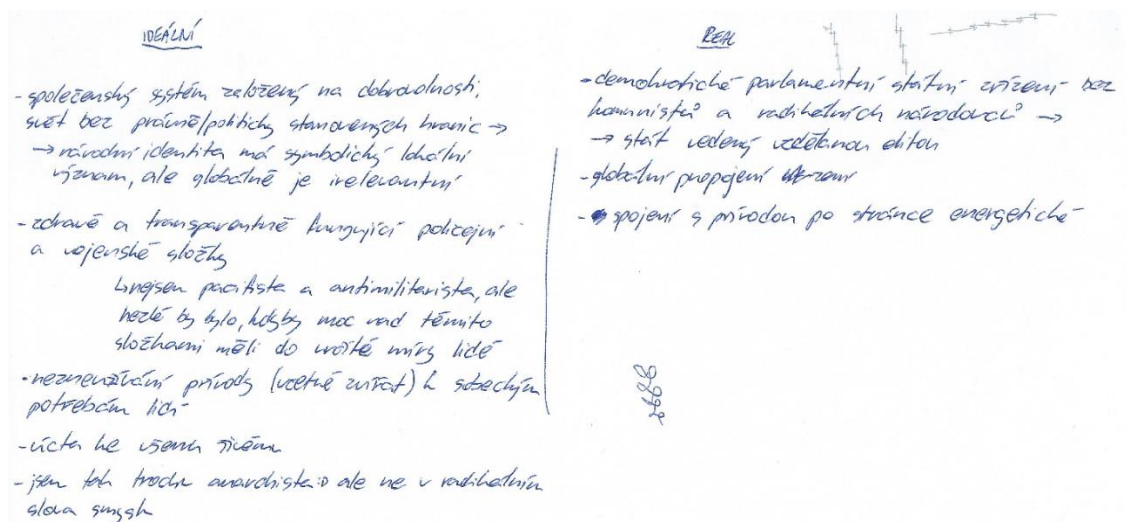 IDEÁLNÍ
- společenský systém založený na dobrovolnosti,
svět bez právně/politicky stanovených hranic →
→ národní identita má symbolický lokální
význam, ale globálně je irelevantní
- zdravě a transparentně fungující policejní
a vojenské složky
↳ nejsem pacifista a antimilitarista, ale
hezké by bylo, kdyby moc nad těmito
složkami měli do určité míry lidé
- nezneužívání přírody (včetně zvířat) k sobeckým
potřebám lidí
- úcta ke všemu živému
- jsem tak trochu anarchista :D ale ne v radikálním
slova smyslu
REAL
- demokratické parlamentní státní zřízení bez
komunistů a radikálních národovců →
→ stát vedený vzdělanou elitou
- globální propojení zemí
- spojení s přírodou po stránce energetické